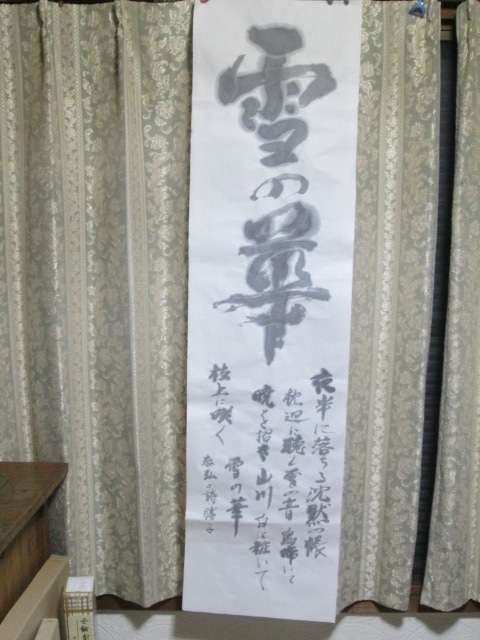 雪の華
夜半に落ちる沈黙の帳
枕辺に聴く雪の音
暁を招き山川
粧いて
枝上に咲く
雪の華